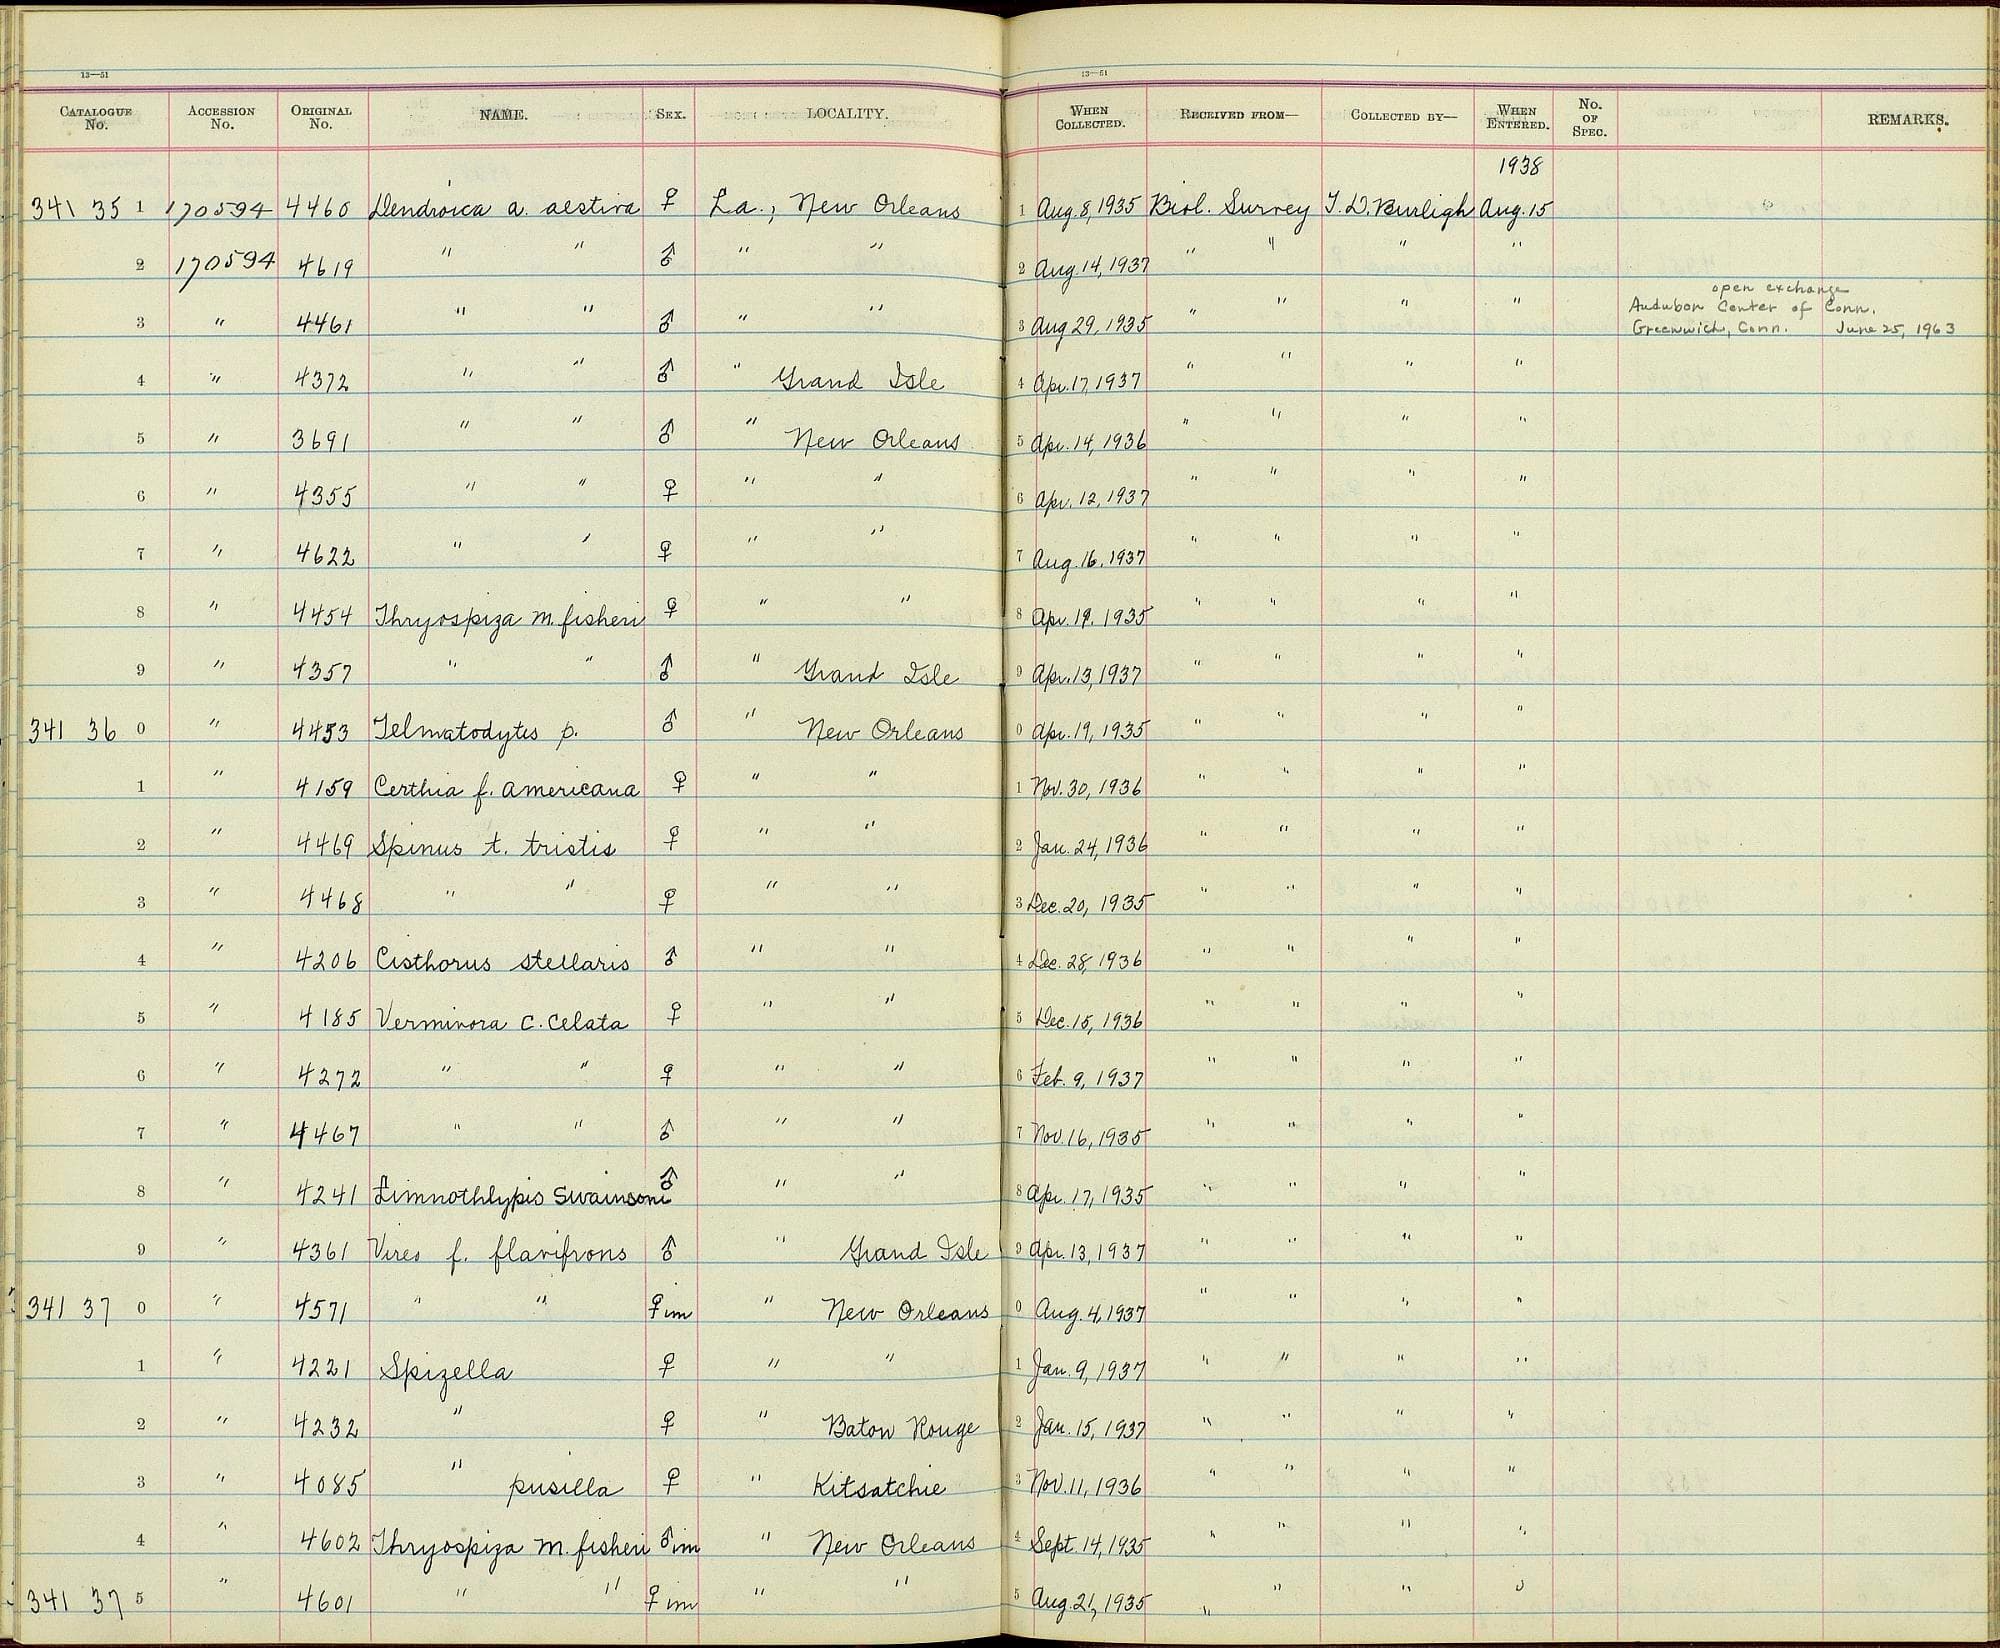 13—51 13—51
CATALOGUE No. ACCESSION No. ORIGINAL No. NAME. SEX. LOCALITY. WHEN COLLECTED. RECEIVED FROM— COLLECTED BY— WHEN ENTERED. No. OF SPEC. REMARKS.
1938
341 35 1 170594 4460 Dendroica a. aestiva ♀ La.; New Orleans 1 Aug. 8, 1935 Biol. Survey T. D. Burleigh Aug. 15
2 170594 4619 " " ♂ " " 2 Aug. 14, 1937 " " " "
open exchange
3 " 4461 " " ♂ " " 3 Aug 29, 1935 " " " " Audubon Center of Conn.
Greenwich, Conn. June 25, 1963
4 " 4372 " " ♂ " Grand Isle 4 Apr. 17, 1937 " " " "
5 " 3691 " " ♂ " New Orleans 5 Apr. 14, 1936 " " " "
6 " 4355 " " ♀ " " 6 Apr. 12, 1937 " " " "
7 " 4622 " " ♀ " " 7 Aug. 16, 1937 " " " "
8 " 4454 Thryospiza m. fisheri ♀ " " 8 Apr. 19, 1935 " " " "
9 " 4357 " " ♂ " Grand Isle 9 Apr. 13, 1937 " " " "
341 36 0 " 4453 Telmatodytes p. ♂ " New Orleans 0 Apr. 19, 1935 " " " "
1 " 4159 Certhia f. americana ♀ " " 1 Nov. 30, 1936 " " " "
2 " 4469 Spinus t. tristis ♀ " " 2 Jan. 24, 1936 " " " "
3 " 4468 " " ♀ " " 3 Dec. 20, 1935 " " " "
4 " 4206 Cisthorus stellaris ♂ " " 4 Dec. 28, 1936 " " " "
5 " 4185 Vermivora c. celata ♀ " " 5 Dec. 15, 1936 " " " "
6 " 4272 " " ♀ " " 6 Feb. 9, 1937 " " " "
7 " 4467 " " ♂ " " 7 Nov. 16, 1935 " " " "
8 " 4241 Limnothlypis swainsoni ♂ " " 8 Apr. 17, 1935 " " " "
9 " 4361 Vireo f. flavifrons ♂ " Grand Isle 9 Apr. 13, 1937 " " " "
341 37 0 " 4571 " " ♀ im " New Orleans 0 Aug. 4, 1937 " " " "
1 " 4221 Spizella ♀ " " 1 Jan. 9, 1937 " " " "
2 " 4232 " ♀ " Baton Rouge 2 Jan. 15, 1937 " " " "
3 " 4085 " pusilla ♀ " Kitsatchie 3 Nov. 11, 1936 " " " "
4 " 4602 Thryospiza m. fisheri ♂ im " New Orleans 4 Sept. 14, 1935 " " " "
341 37 5 " 4601 " " ♀ im " " 5 Aug. 21, 1935 " " " "